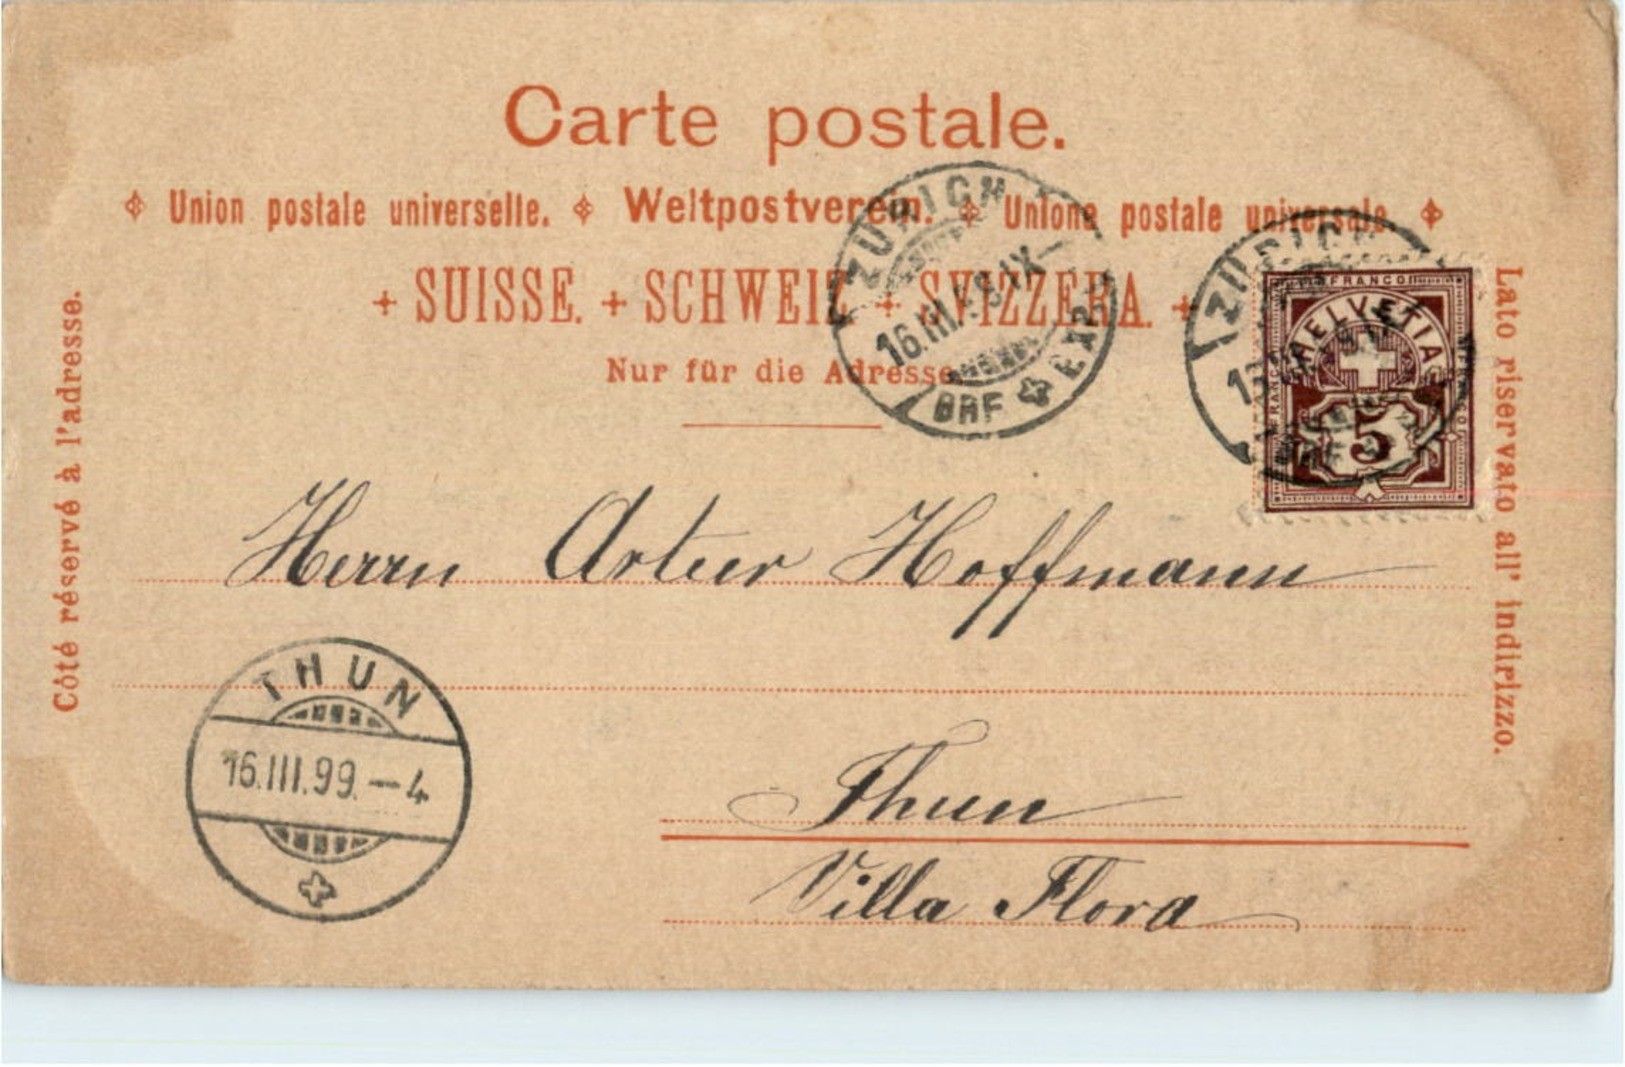 Carte postale.
Union postale universelle. Weltpostverein. Unione postale universale
+ SUISSE. + SCHWEIZ + SVIZZERA. +
Nur für die Adresse
Côté réservé à l'adresse.
Lato riservato all' indirizzo.
ZÜRICH
16.III. IX–
BRF EXP
ZÜRICH
FRANCO
HELVETIA
5
Herrn Artur Hoffmann
THUN
16.III.99.–4
Thun
Villa Flora